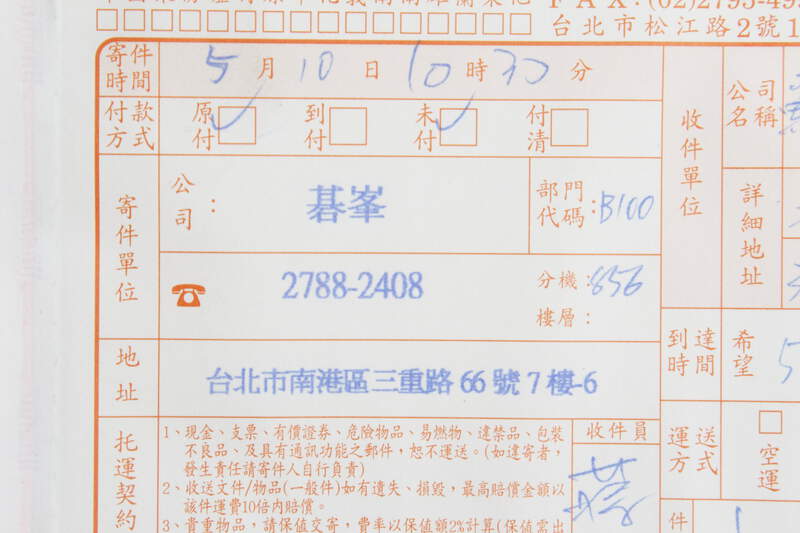 FAX:(02)2793-49
台北市松江路2號1
寄件時間 5月10日10時30分
付款方式 原付 到付 未付 付清
收件單位
公司名稱
寄件單位 公司: 碁峯 部門代碼:B100
詳細地址
2788-2408 分機:856
樓層:
地址 台北市南港區三重路66號7樓-6
到達時間 希望 5
託運契約
1、現金、支票、有價證券、危險物品、易燃物、違禁品、包裝
不良品、及具有通訊功能之郵件,恕不運送。(如違寄者,
發生責任請寄件人自行負責)
2、收送文件/物品(一般件)如有遺失、損毀,最高賠償金額以
該件運費10倍內賠償。
3、貴重物品,請保值交寄,費率以保值額2%計算(保值需出
收件員
運送方式 空運
件